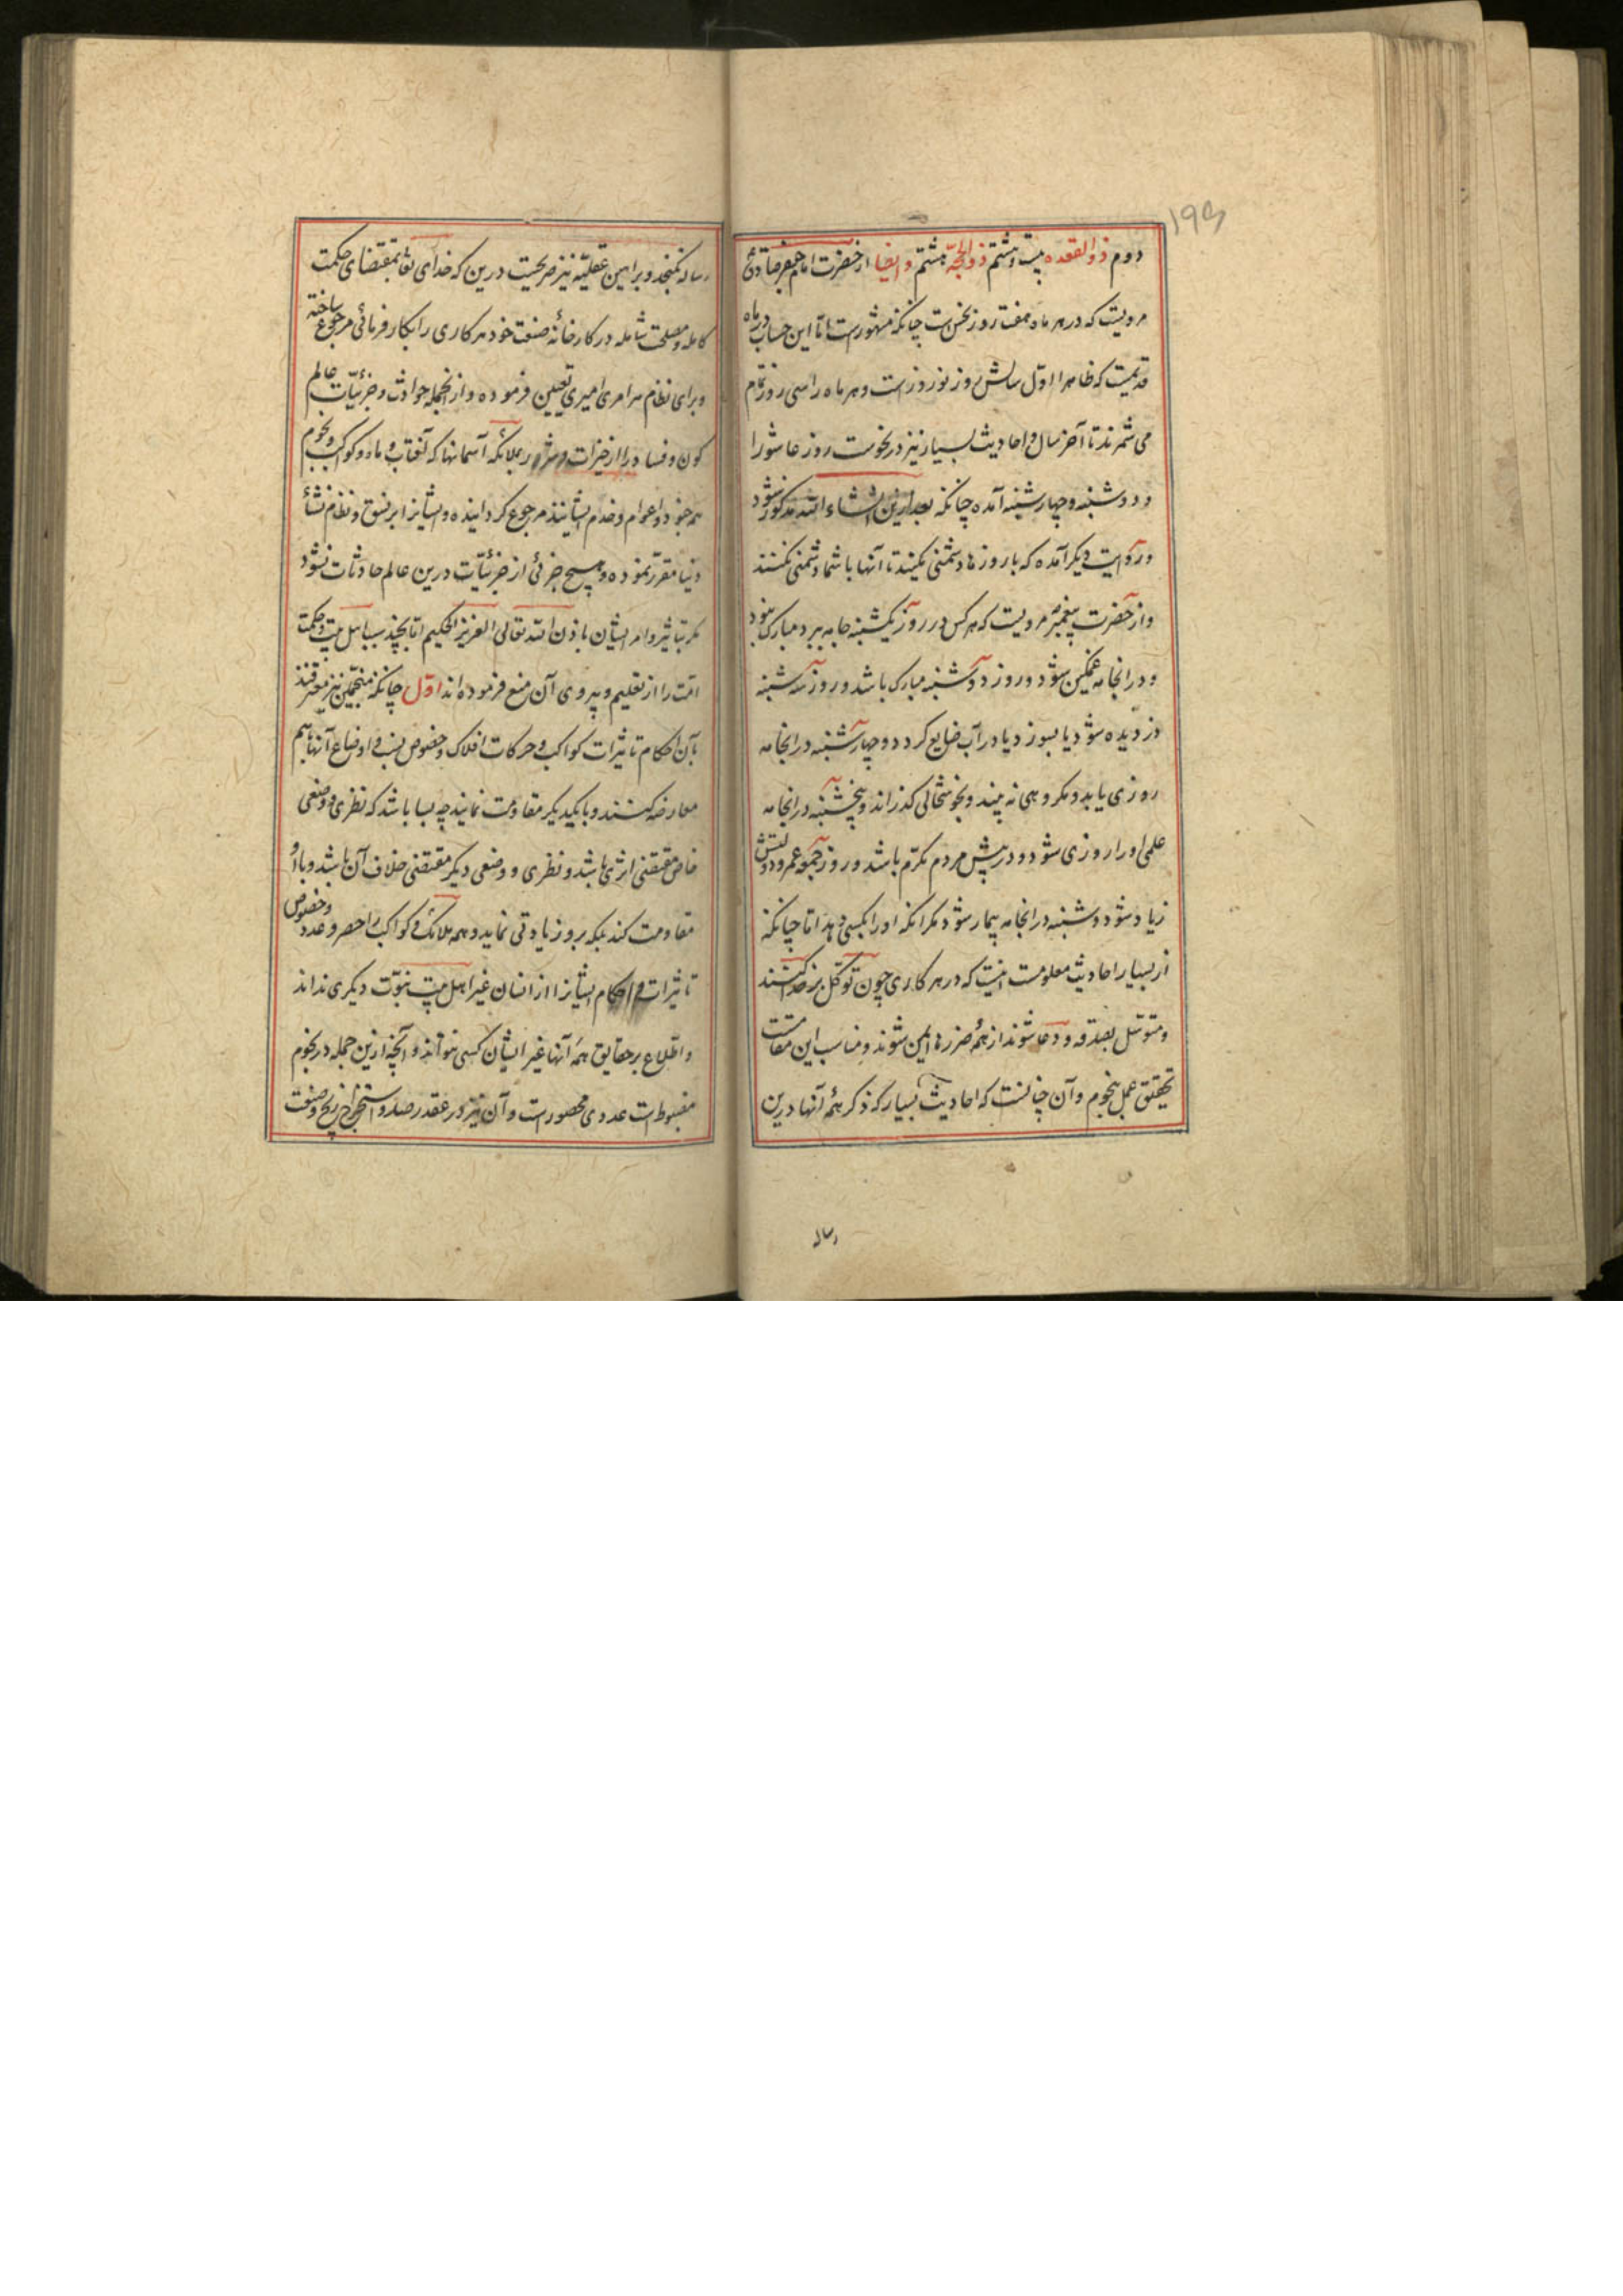 ۱۹۳
دوم ذوالقعده بیست و هشتم ذوالحجّه هشتم و ایضا از حضرت امام جعفر صادق
مرویست که در هر ماه هفت روز نحس است چنانکه مشهورست امّا این حساب در ماه
قدیمست که ظاهرا اوّل سالش روز نوروزست و هر ماه را سی روز تمام
می شمرند تا آخر سال و احادیث بسیار نیز در نحوست روز عاشورا
و دوشنبه و چهارشنبه آمده چنانکه بعد ازین انشاء الله مذکور شود
و روایت دیگر آمده که با روزها دشمنی نکنید تا آنها با شما دشمنی نکنند
و از حضرت پیغمبر مرویست که هر کس در روز یکشنبه جامه ببرد مبارک نبود
و در آنجامه غمگین شود و روز دوشنبه مبارک باشد و روز سه شنبه
دزدیده شود یا بسوزد یا در آب ضایع کردد و چهارشنبه در آنجامه
روزی یابد و مکروهی نه بیند و بخوشحالی کذراند و پنجشنبه در آنجامه
علمی او را روزی شود و در پیش مردم مکرّم باشد و روز جمعه عمر و دولتش
زیاد شود و شنبه در آنجامه بیمار شود مکر آنکه او را بکسی دهد امّا چنانکه
از بسیار احادیث معلومست اینست که در هر کاری چون توکّل بر خدا کنند
و متوسّل بصدقه و دعا شوند از همهٔ ضررها ایمن شوند و مناسب این مقامست
تحقیق عمل نجوم و آن چنانست که احادیث بسیار که ذکر همهٔ آنها درین
رساله
رساله نکنجد و براهین عقلیّه نیز صریحست درین که خدای تعا بمقتضای حکمت
کامله و مصلحت شامله در کارخانهٔ صنعت خود هر کاری را بکارفرمائی مرجوع ساخته
و برای نظام هر امری امیری تعیین فرموده و از انجمله حوادث و جزئیّات عالم
کون و فساد را از خیرات و شرور بملائکه آسمانها که آفتاب و ماه و کواکب و نجوم
همه جنود و اعوام و خدم ایشانند مرجوع کردانیده و ایشانرا بر نسق و نظام نشأ
دنیا مقرّر نموده و هیچ جزئی از جزئیّات درین عالم حادثات نشود
مکر بتاثیر و امر ایشان باذن الله تعالی العزیز الحکیم امّا بچند سبب اهل بیت و حکمت
امّت را از تعلیم و پیروی آن منع فرموده اند اوّل چنانکه منجّمین نیز معترفند
بآن احکام تاثیرات کواکب و حرکات افلاک و خصوص نسب و اوضاع آنها باهم
معارضه کنند و با یکدیکر مقاومت نمایند چه بسا باشد که نظری و وضعی
خاص مقتضی اثری باشد و نظری و وضعی دیکر مقتضی خلاف آن باشد و با او
مقاومت کند بلکه برو زیادتی نماید و همه ملائک و کواکب را حصر و عدد و خصوص
تاثیرات و احکام ایشانرا از انسان غیر اهل بیت نبوّت دیکری نداند
و اطّلاع بر حقایق همهٔ آنها غیر ایشان کسی نتواند و آنچه ازین جمله در نجوم
مضبوط است عددی محصورست و آن نیز در عقد رصد و استخراج زیج و صنعت